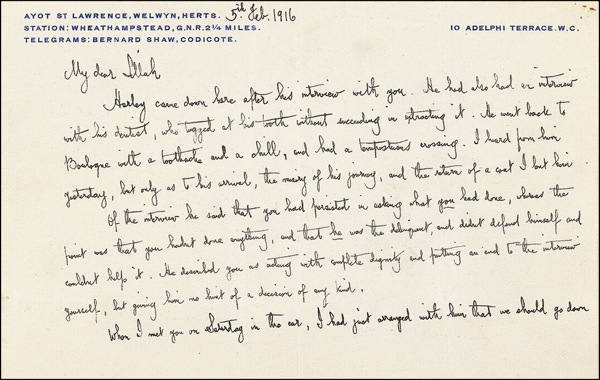 AYOT ST LAWRENCE, WELWYN, HERTS. 5th Feb. 1916
STATION: WHEATHAMPSTEAD, G.N.R. 2¼ MILES. 10 ADELPHI TERRACE. W.C.
TELEGRAMS: BERNARD SHAW, CODICOTE.
My dear Lillah
Harley came down here after his interview with you. He had also had an interview
with his dentist, who tugged at his tooth without succeeding in extracting it. He went back to
Boulogne with a toothache and a chill, and had a tempestuous crossing. I heard from him
yesterday, but only as to his arrival, the misery of his journey, and the return of a coat I lent him.
Of the interview he said that you had persisted in asking what you had done, whereas the
point was that you hadnt done anything, and that he was the delinquent, and didnt defend himself and
couldnt help it. He described you as acting with complete dignity and putting an end to the interview
yourself, but giving him no hint of a decision of any kind.
When I met you on Saturday in the car, I had just arranged with him that we should go down